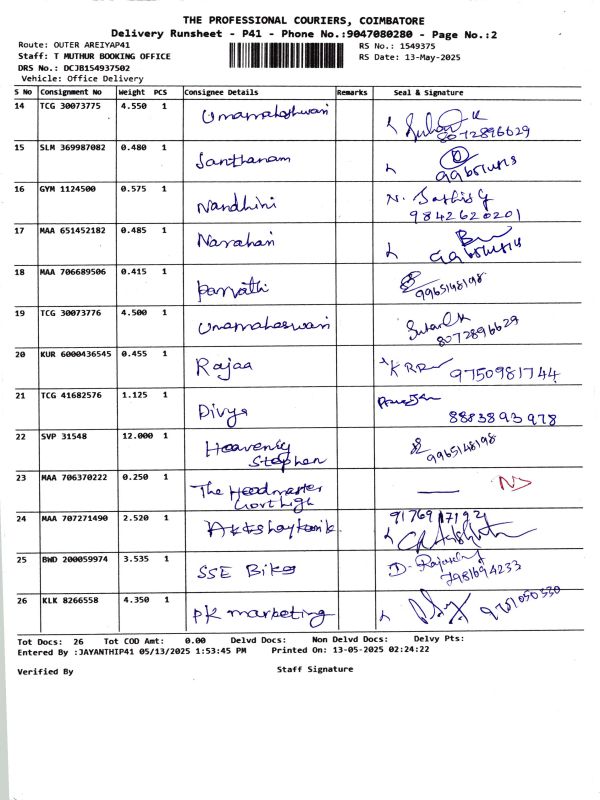 THE PROFESSIONAL COURIERS, COIMBATORE
Delivery Runsheet - P41 - Phone No.:9047080280 - Page No.:2
Route: OUTER AREIYAP41
Staff: T MUTHUR BOOKING OFFICE
DRS No.: DCJB154937502
Vehicle: Office Delivery
RS No.: 1549375
RS Date: 13-May-2025
S No Consignment No Weight PCS Consignee Details Remarks Seal & Signature
14 TCG 30073775 4.550 1 Umamaheshwari 8072896629
15 SLM 369987082 0.480 1 Santhanam
16 GYM 1124500 0.575 1 Nandhini 9842620201
17 MAA 651452182 0.485 1 Narahari
18 MAA 706689506 0.415 1 Parvathi 9965148198
19 TCG 30073776 4.500 1 Umamaheswari 8072896629
20 KUR 6000436545 0.455 1 Rajaa KRR 9750981744
21 TCG 41682576 1.125 1 Divya 8883893978
22 SVP 31548 12.000 1 Heavenly Stephen 9965148198
23 MAA 706370222 0.250 1 The Headmaster ND
24 MAA 707271490 2.520 1
25 BWD 200059974 3.535 1 SSE Bikes 7981694233
26 KLK 8266558 4.350 1 PK marketing
Tot Docs: 26 Tot COD Amt: 0.00 Delvd Docs: Non Delvd Docs: Delvy Pts:
Entered By :JAYANTHIP41 05/13/2025 1:53:45 PM Printed On: 13-05-2025 02:24:22
Verified By Staff Signature